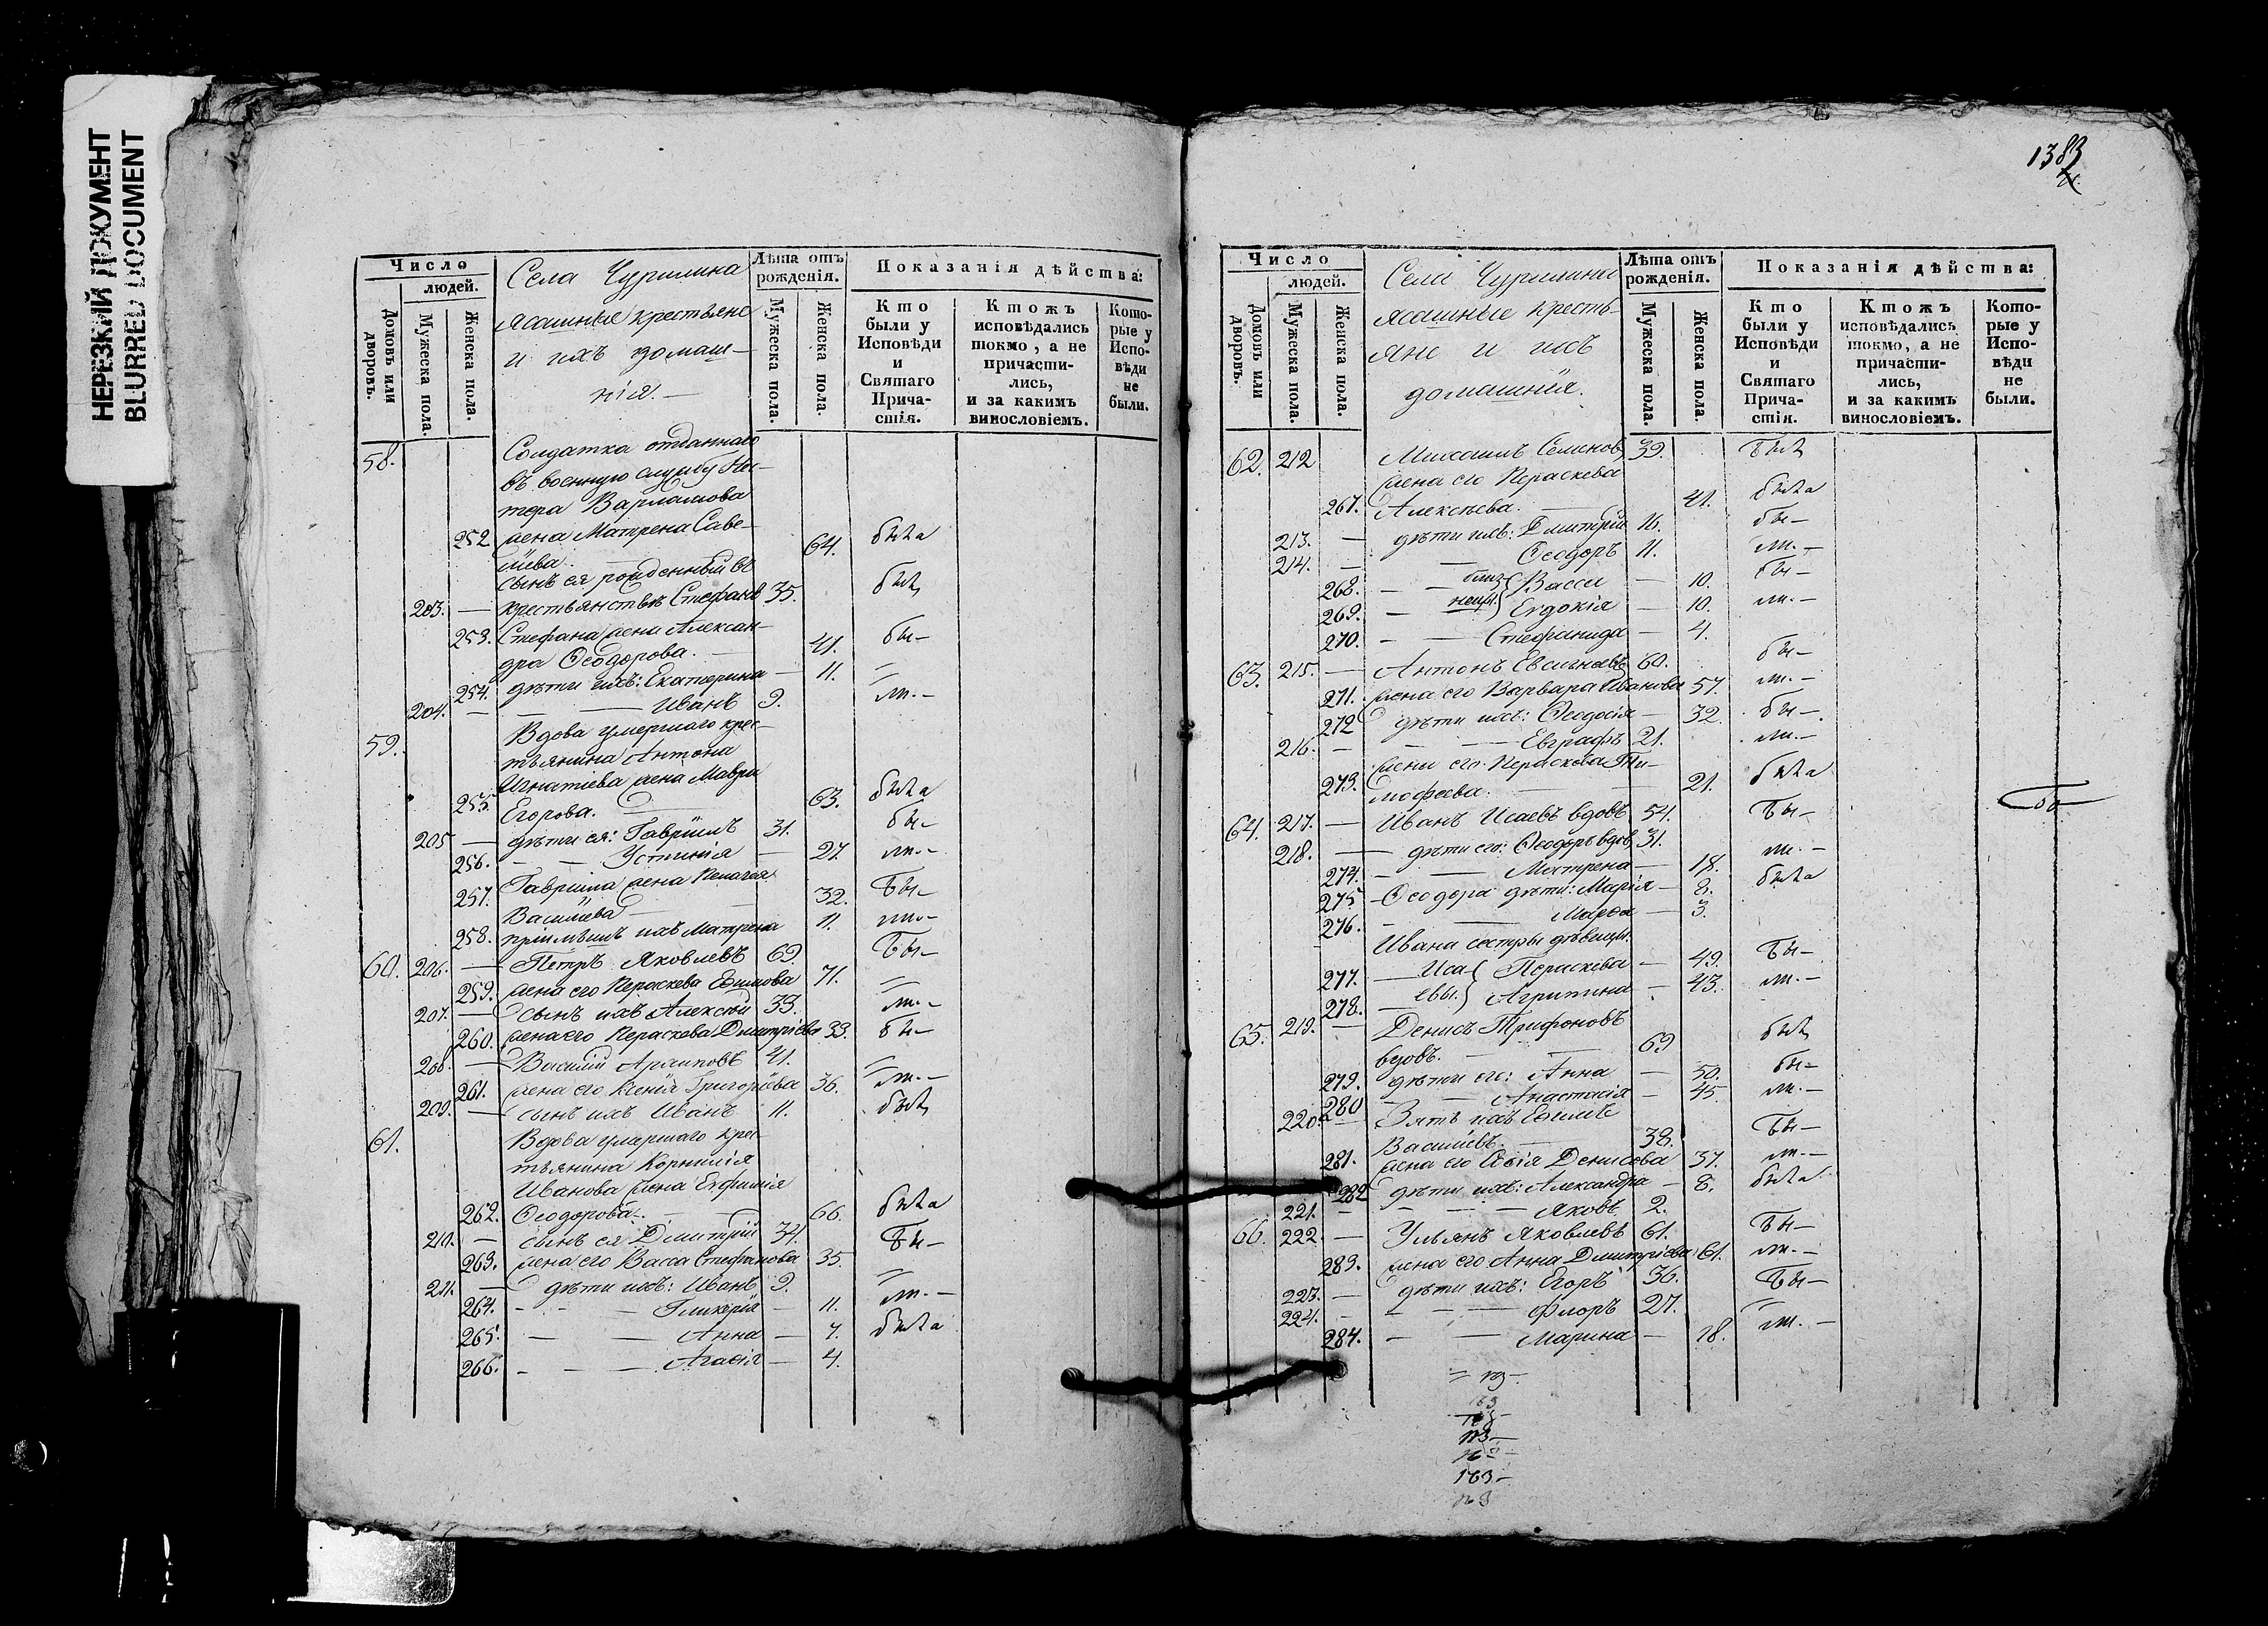 НЕРЕЗКИЙ ДОКУМЕНТ
BLURRED DOCUMENT
Число
людей.
Домовъ или дворовъ.
Мужеска пола.
Женска пола.
Села Чурилина
ясашные крестьяне
и ихъ домаш-
нія. —
Лѣта отъ рожденія.
Мужеска пола.
Женска пола.
Показанія дѣйства:
Кто были у Исповѣди и Святаго Прича-стія.
Ктожъ исповѣдались токмо, а не причасти-лись, и за какимъ винословіемъ.
Кото-рые у Испо-вѣди не были.
58. Солдатка отданнаго
въ военную службу Нес-
тера Варламова
252 жена Матрена Саве- 64. была
лиева.
сынъ ея рожденный въ
203. — крестьянствѣ Стефанъ 35. былъ
253. Стефана жена Алексан- 41. бы-
дра Ѳеодорова. —
254. дѣти ихъ: Екатерина — 11. =
204. — — Иванъ 9. ли. -
59. Вдова умершаго крес-
тьянина Антона
Игнатіева жена Мавра
255. Егорова. 63. была
205 — дѣти ея: Гавріилъ 31. бы-
256. - - Устинія — 27. ли. -
257. Гавріила жена Пелагея 32. Бы-
Василиева —
258. пріимышъ ихъ Матрена 11. ли-
60. 206. — Петръ Яковлевъ 69. Бы-
259. жена его Параскева Ефимова 71. =
207. — сынъ ихъ Алексѣй 33. ли. -
260. жена его Параскева Дмитріева 33. бы-
208. — Василій Архиповъ 41. =
261. жена его Ксенія Григоріева 36. ли. -
209. — сынъ ихъ Иванъ 11. былъ
61. Вдова умершаго крес-
тьянина Корнилія
Иванова жена Евфимія
262. Ѳеодорова. — 66. была
210. — сынъ ея Дмитрій 34. Бы-
263. жена его Васса Стефанова 35. =
211. — дѣти ихъ: Иванъ 9. =
264. - - — Гликерія — 11. ли. -
265. — — Анна — 7. была
266. - — Агаѳія — 4.
1383
Число
людей.
Домовъ или дворовъ.
Мужеска пола.
Женска пола.
Села Чурилина
ясашные кресть-
яне и ихъ
домашнія.
Лѣта отъ рожденія.
Мужеска пола.
Женска пола.
Показанія дѣйства:
Кто были у Исповѣди и Святаго Прича-стія.
Ктожъ исповѣдались токмо, а не причасти-лись, и за какимъ винословіемъ.
Кото-рые у Испо-вѣди не были.
62. 212 Михаилъ Семеновъ 39. Былъ
жена его Параскева
267. Алексѣева. — 41. была
213. — дѣти ихъ: Дмитрій 16. бы-
214. — — Ѳеодоръ 11. ли. -
268. — - близ { Васса — 10. бы-
269. - нецы. } Евдокія — 10. ли. -
270. - — Стефанида — 4.
63. 215. — Антонъ 60. бы-
271. жена его Варвара Иванова 57. ли. -
272 дѣти ихъ: Ѳеодосія — 32. бы-
216. — - — Евграфъ 21. ли. -
жена его Параскева Ти-
273. моѳеева. — 21. была
64. 217. — Иванъ Исаевъ вдовъ 54. Бы-
218. — дѣти его: Ѳеодоръ вдов. 31. ли. -
274. - — Матрена — 18. была
275 - Ѳеодора дѣти: Марія — 8.
276. - — Марѳа — 3.
Ивана сестры дѣвицы:
277. — Иса- { Параскева — 49. Бы-
278. — евы. } Агрипина — 43. ли. -
65. 219. — Денисъ Трифоновъ
вдовъ. — — 69 былъ
279. дѣти его: Анна — 50. бы-
280 - Анастасія — 45 ли. -
220. — Зять ихъ Ефимъ
Василиевъ. — 38. Бы-
281. жена его Ѳевія Денисова 37. ли. -
282 дѣти ихъ: Александра — 8. была
221. — - — Яковъ 2.
66. 222. — Ульянъ Яковлевъ 61. Бы-
283. жена его Анна Дмитріева 61. ли. -
223. — дѣти ихъ: Егоръ 36. Бы-
224. — - — Флоръ 27. =
284. - — Марина — 18. ли. -
163-